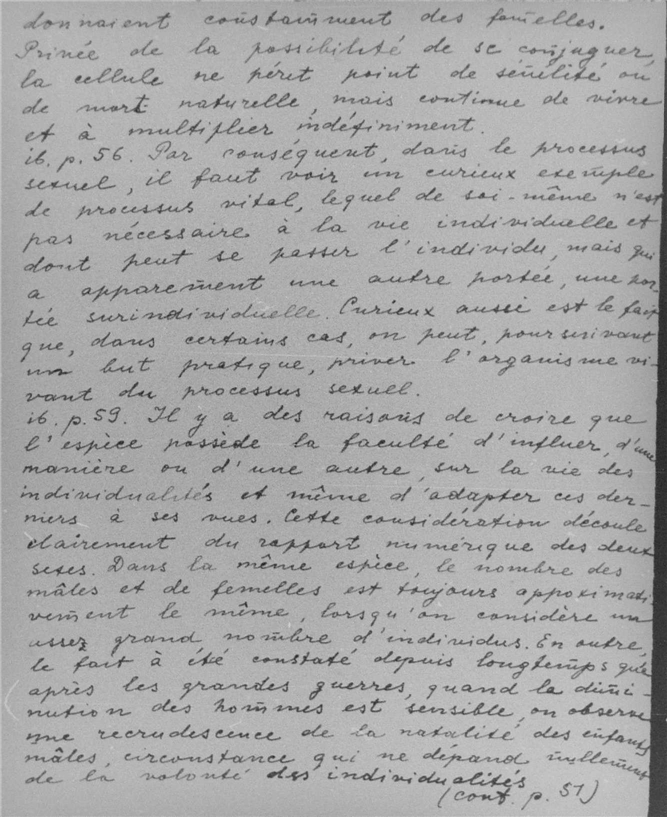 donnaient constamment des femelles.
Privée de la possibilité de se conjuguer,
la cellule ne périt point de sénilité ou
de mort naturelle, mais continue de vivre
et à multiplier indéfiniment.
ib. p. 56. Par conséquent, dans le processus
sexuel, il faut voir un curieux exemple
de processus vital, lequel de soi-même n'est
pas nécessaire à la vie individuelle et
dont peut se passer l'individu, mais qui
a apparement une autre portée, une por
tée surindividuelle. Curieux aussi est le fait
que, dans certains cas, on peut, poursuivant
un but pratique, priver l'organisme vi-
vant du processus sexuel.
ib. p. 59. Il y a des raisons de croire que
l'espèce possède la faculté d'influer, d'une
manière ou d'une autre, sur la vie des
individualités et même d'adapter ces der-
niers à ses vues. Cette considération découle
clairement du rapport numérique des deux
sexes. Dans la même espèce, le nombre des
mâles et de femelles est toujours appoximati-
vement le même, lorsqu'on considère un
assez grand nombre d'individus. En outre,
le fait à été constaté depuis longtemps qu'
après les grandes guerres, quand la dimi-
nution des hommes est sensible, on observe
une recrudescence de la natalité des enfants
mâles, circonstance qui ne dépand nullement
de la volonté des individualités
(cont. p. 51)